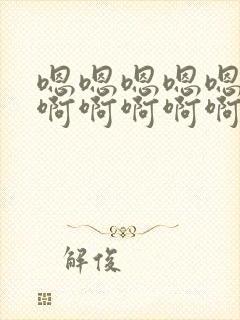 嗯嗯嗯嗯嗯
啊啊啊啊啊
解俊